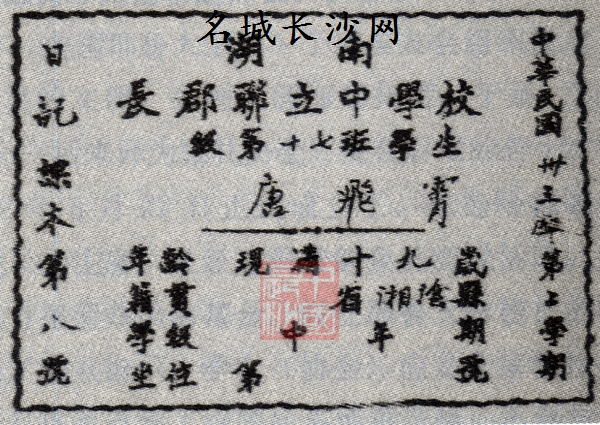 名城长沙网
中華民國卅三第上學期
湖南
長郡聯立中學校
級第十七班學生
唐飛霄
年齡現滿十九歲
籍貫省湘陰縣
學級中年期
坐位第號
日記課本第八號